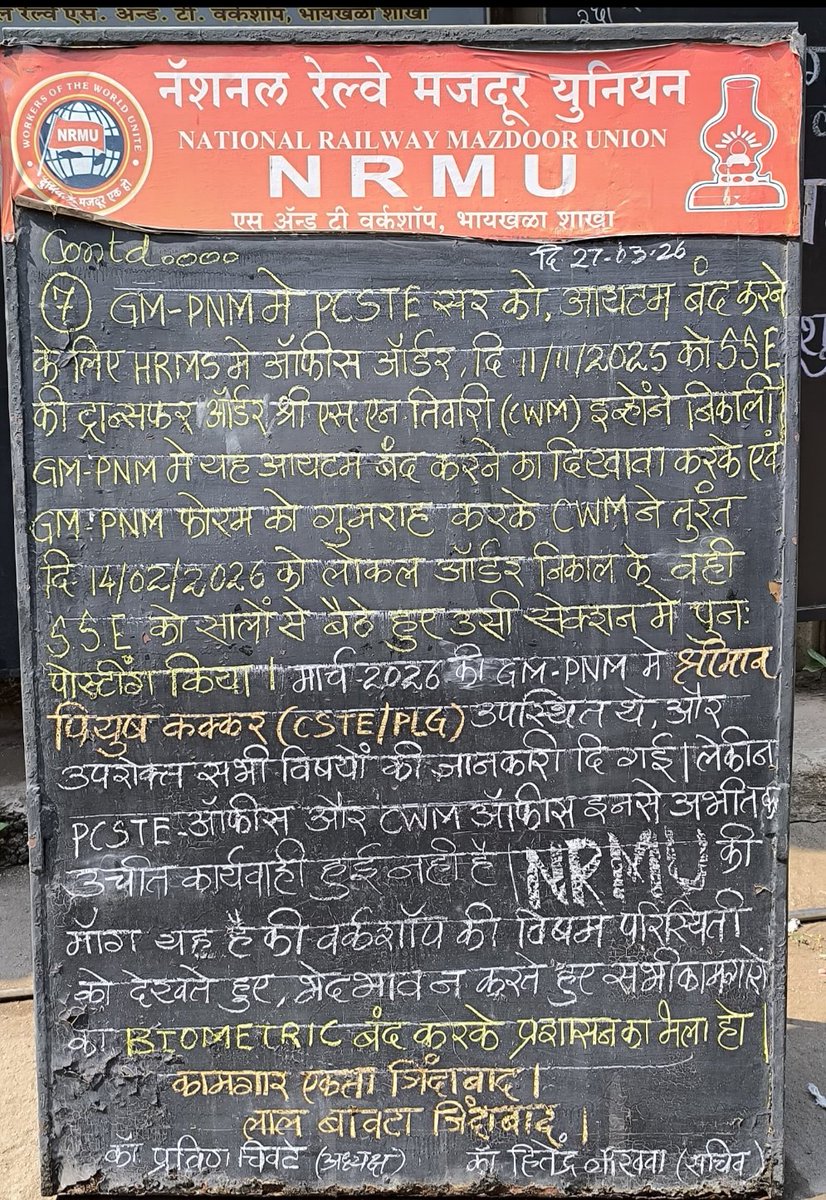 ल रेल्वे एस. अॅन्ड. टी. वर्कशॉप, भायखळा शाखा
नॅशनल रेल्वे मजदूर युनियन
NATIONAL RAILWAY MAZDOOR UNION
NRMU
एस अॅन्ड टी वर्कशॉप, भायखळा शाखा
WORKERS OF THE WORLD UNITE
NRMU
Contd.....
दि 27-03-26
(7) GM-PNM मे PCSTE सर को, आयटम बंद करने
के लिए HRMS मे ऑफीस ऑर्डर, दि 11/11/2025 को SSE
की ट्रान्सफर ऑर्डर श्री एस.एन.तिवारी (CWM) इन्होंने निकाली
GM-PNM मे यह आयटम बंद करने का दिखावा करके एवं
GM-PNM फोरम को गुमराह करके CWM ने तुरंत
दि 14/02/2026 को लोकल ऑर्डर निकाल के वही
SSE को सालों से बैठे हुए उसी सेक्शन मे पुनः
पोस्टींग किया। मार्च 2026 की GM-PNM मे श्रीमान
पियुष कक्कर (CSTE/PLG) उपस्थित थे, और
उपरोक्त सभी विषयों की जानकारी दि गई। लेकीन
PCSTE-ऑफीस और CWM ऑफीस इनसे अभीतक
उचीत कार्यवाही हुई नही है। NRMU की
माँग यह है की वर्कशॉप की विषम परिस्थिती
को देखते हुए, भेदभाव न करते हुए सभी कामगारों
का BIOMETRIC बंद करके प्रशासन का भला हो।
कामगार एकता जिंदाबाद।
लाल बावटा जिंदाबाद।
कॉ प्रविण चिवटे (अध्यक्ष) कॉ हितेंद्र (सचिव)